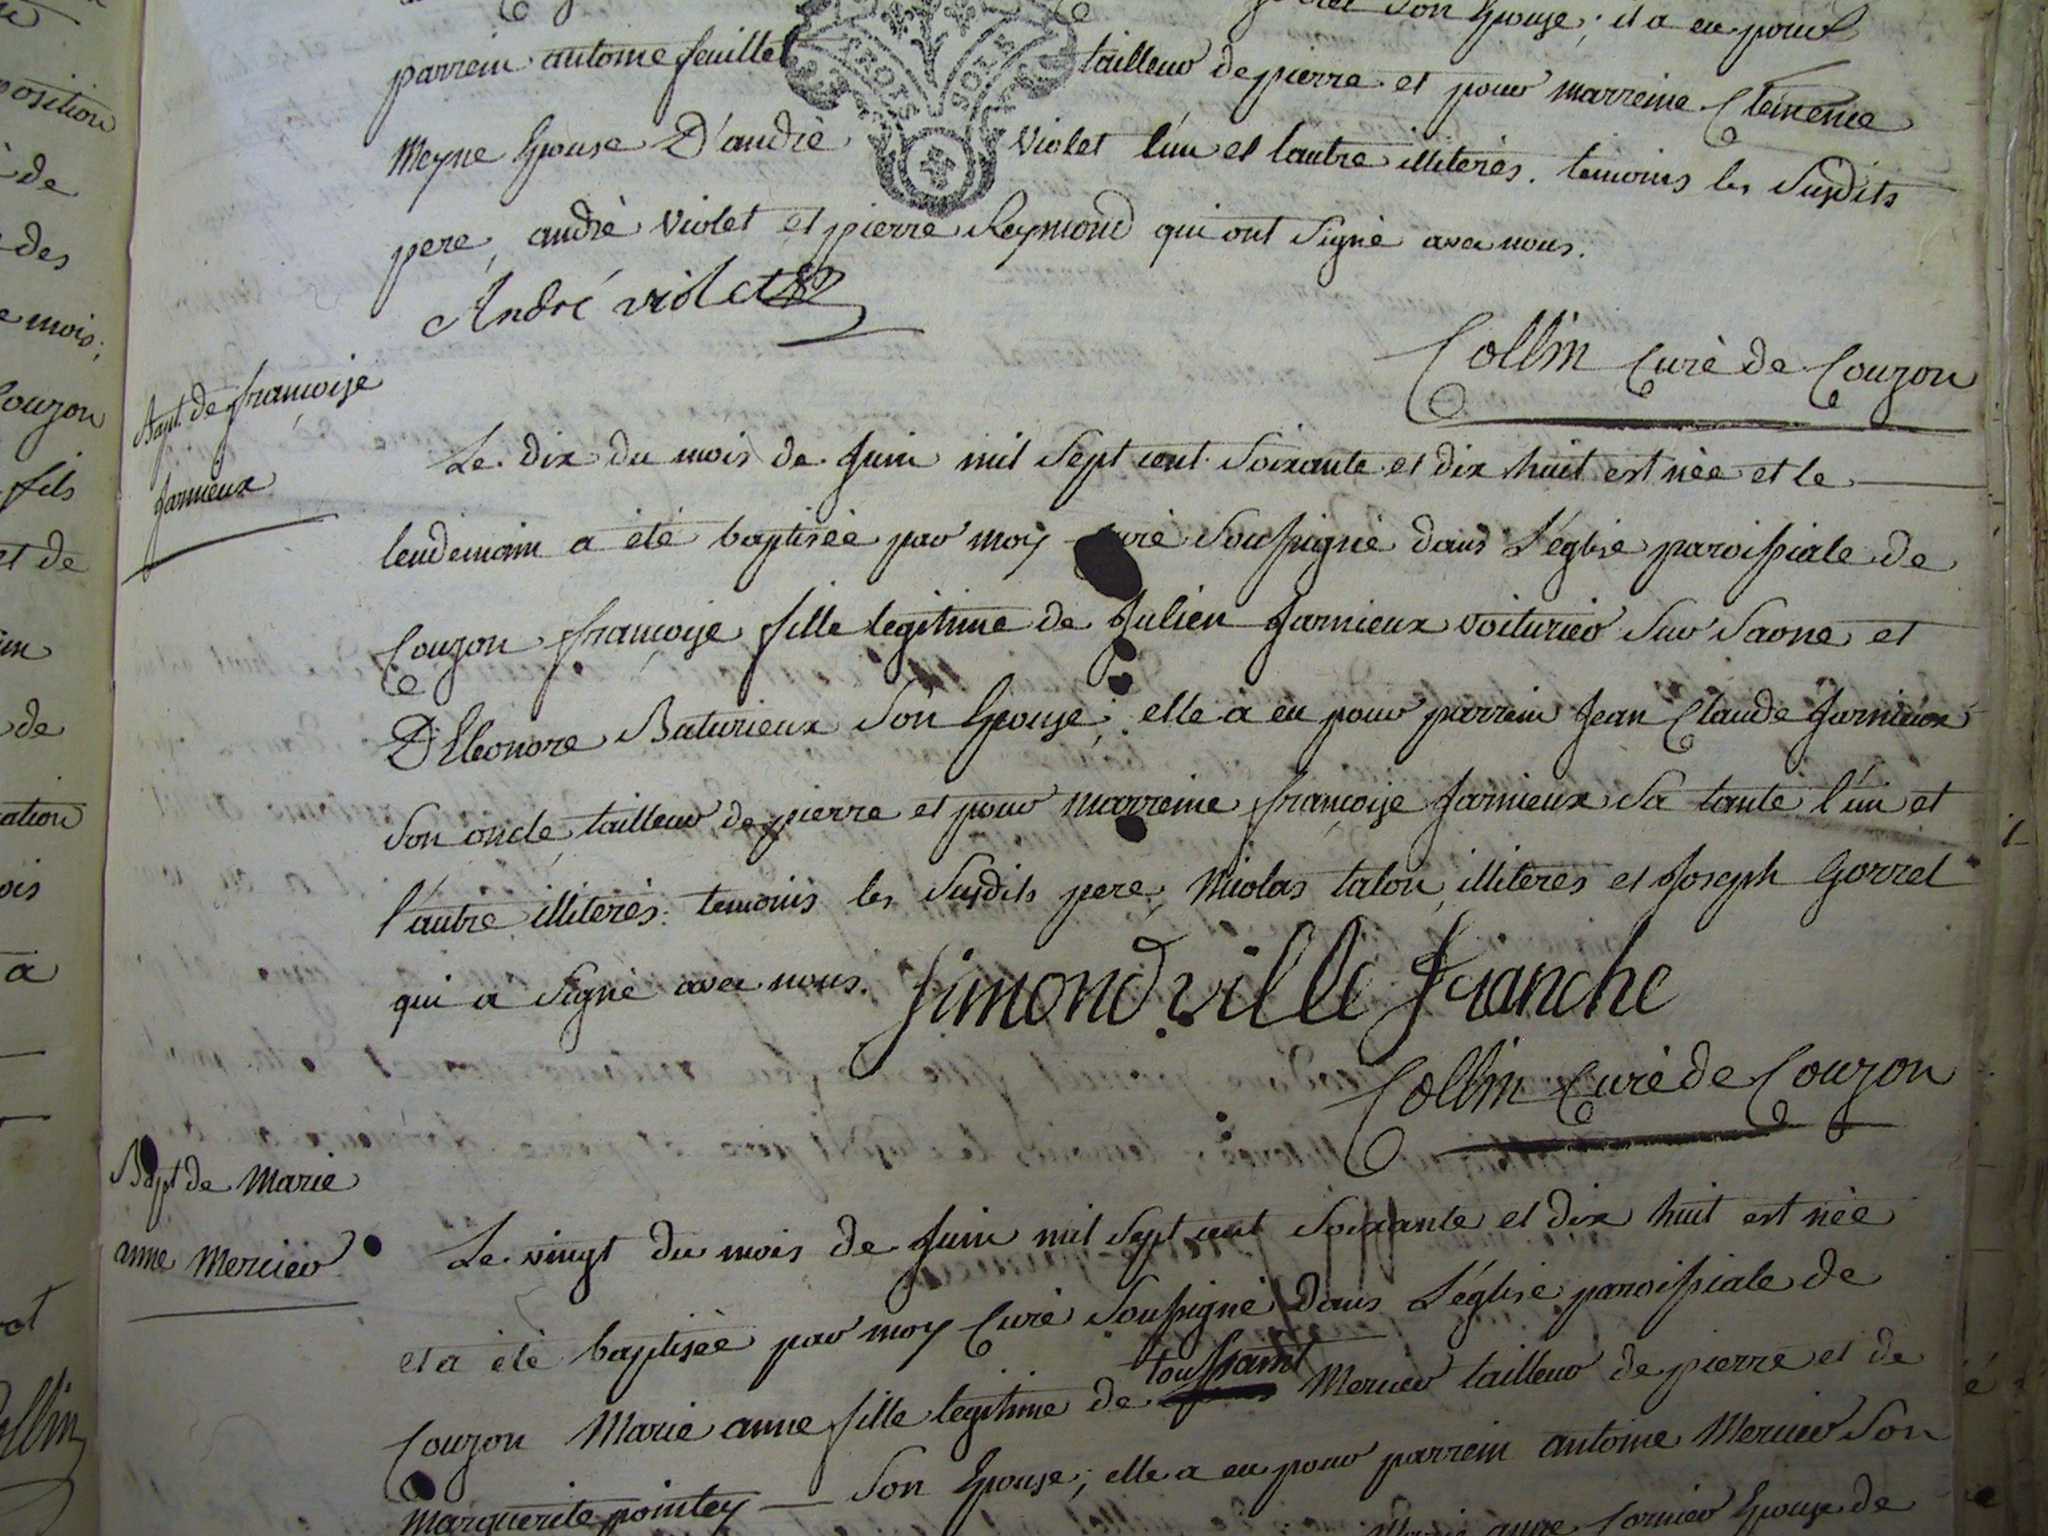 son Epouse; il a eu pour
parrein antoine feuillet tailleur de pierre et pour marreine Clemence
Meyne Epouse D'andrè Violet l'un et l'autre illiterès. temoins les Susdits
pere, andrè Violet et pierre Reymond qui ont Signè avec nous.
André violet
Collin Curè de Couzon
Bapt. de françoise
Jarnieux
Le dix du mois de Juin mil Sept cent Soixante et dix huit est nèe et le
lendemain a étè baptisèe par moy curè Soussignè dans L'églize paroissiale de
Couzon françoise fille legitime de Julien Jarnieux voiturier Sur Saone et
D'Eleonore Baturieux Son Epouse; elle a eu pour parrein Jean Claude Jarnieux
Son oncle tailleur de pierre et pour marreine françoise Jarnieux Sa tante l'un et
l'autre illiterés. temoins les Susdits pere, Nicolas talon, illiterès et Joseph Gorrel
qui a Signè avec nous. Simond ville franche
Collin Curè de Couzon
Bapt de Marie
anne Mercier
Le vingt du mois de Juin mil Sept cent Soixante et dix huit est nèe
et a étè baptisèe par moy Curè Soussignè dans L'églize paroissiale de
toussaint
Couzon Marie anne fille legitime de Mercier tailleur de pierre et de
Marguerite pointey Son Epouse; elle a eu pour parrein antoine Mercier Son
Marie anne Cornier Epouse de
position
de
des
mois;
Couzon
fils
et de
de
a
Collin